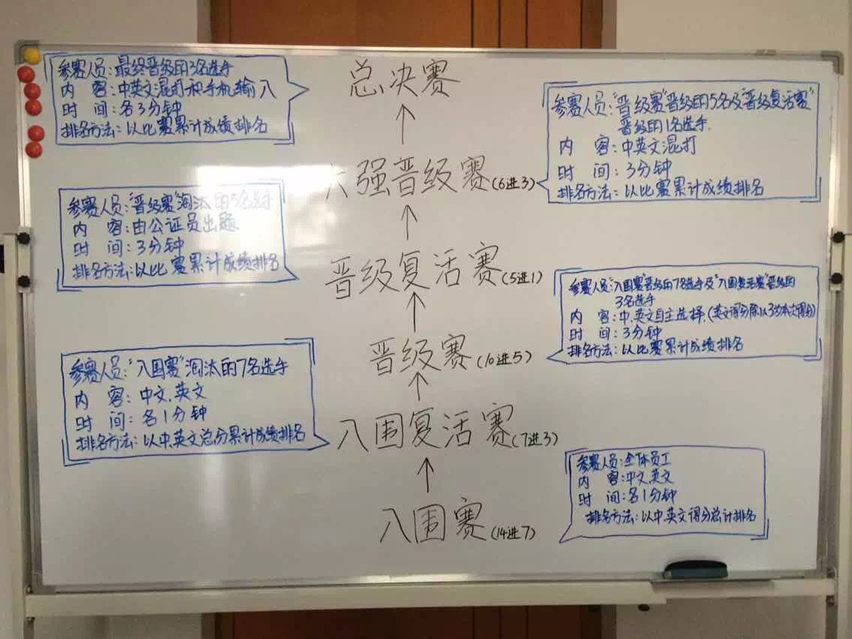 参赛人员：最终晋级的3名选手
内 容：中英文混打和手机输入
时 间：各3分钟
排名方法：以比赛累计成绩排名
总决赛
参赛人员：“晋级赛”晋级的5名及“晋级复活赛”
晋级的1名选手.
内 容：中英文混打
时 间：3分钟
排名方法：以比赛累计成绩排名
六强晋级赛(6进3)
参赛人员：“晋级赛”淘汰的5名选手
内 容：由公证员出题
时 间：3分钟
排名方法：以比赛累计成绩排名
晋级复活赛(5进1)
参赛人员：“入围赛”晋级的7名选手及“入围复活赛”晋级的
3名选手
内 容：中.英文自主选择.(英文得分除以3为本次得分)
时 间：3分钟
排名方法：以比赛累计成绩排名
晋级赛(10进5)
参赛人员：“入围赛”淘汰的7名选手
内 容：中文.英文
时 间：各1分钟
排名方法：以中.英文总分累计成绩排名
入围复活赛(7进3)
参赛人员：全体员工
内 容：中文.英文
时 间：各1分钟
排名方法：以中英文得分总计排名
入围赛(14进7)